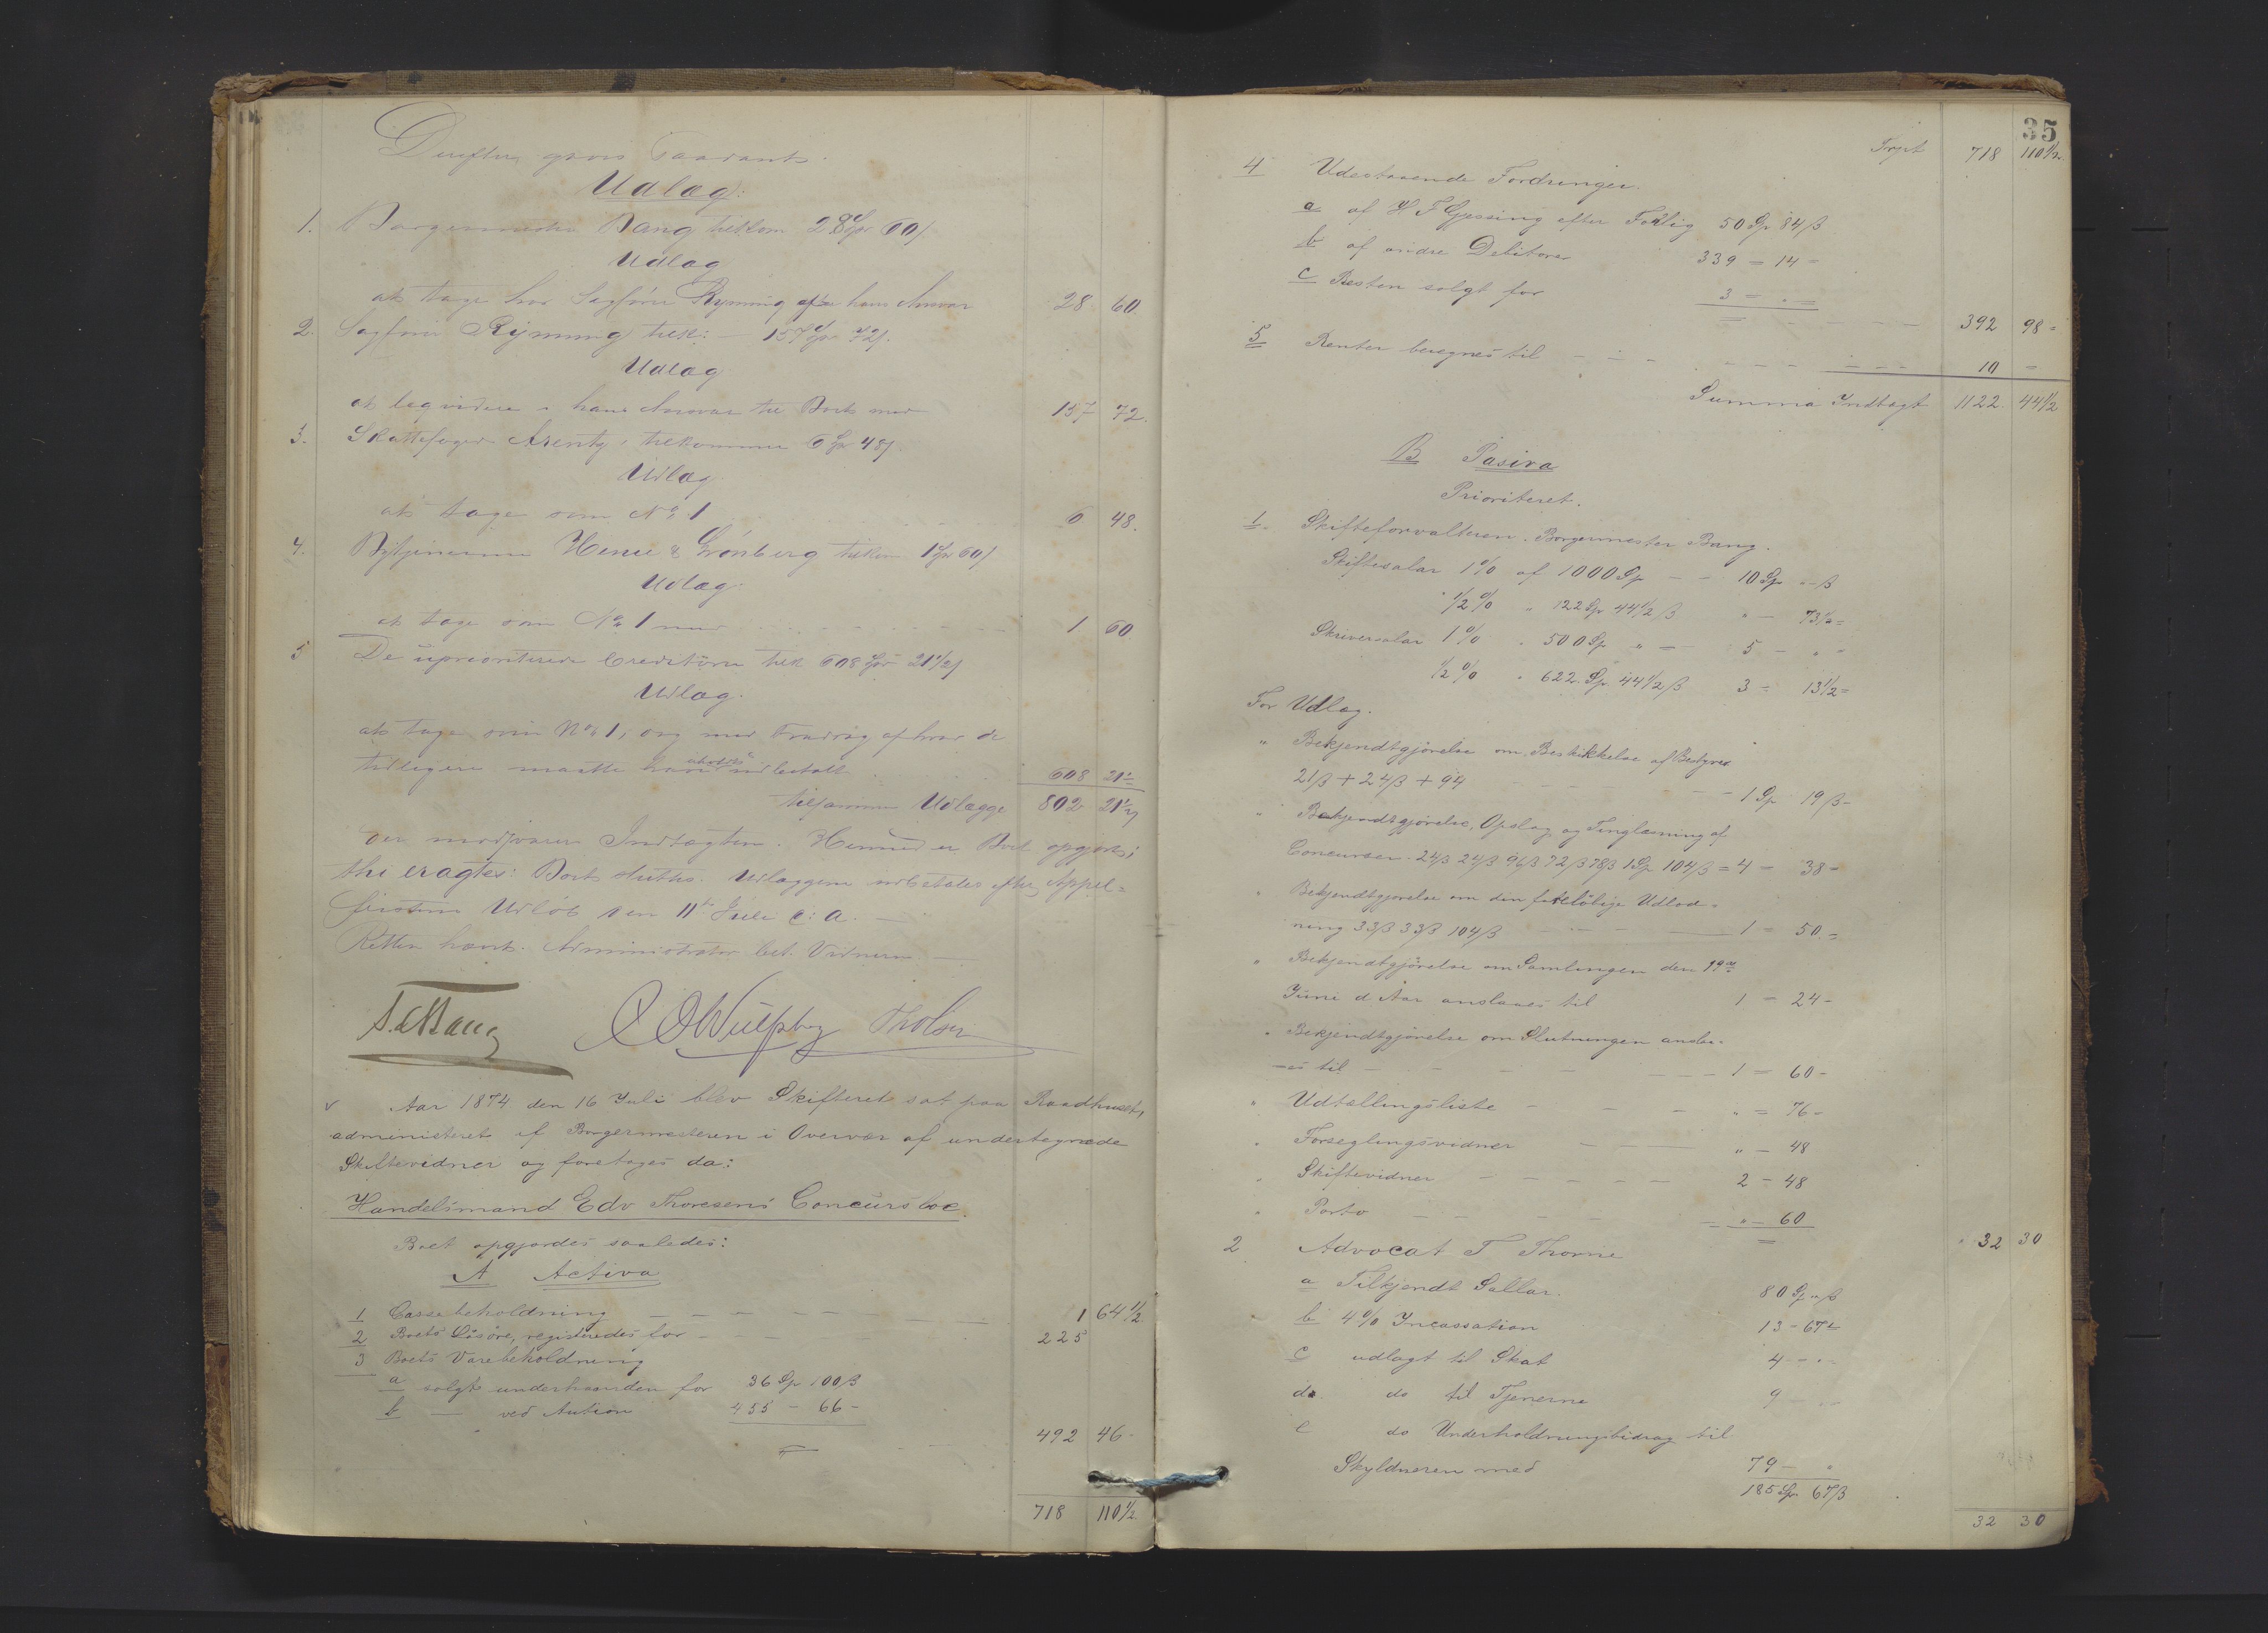 Derefter gaves saadant
Udlæg:
1. Borgermester Bang tilkom 28 Spd 60 ß
Udlæg
at tage hos Sagfører Rynning af hans Ansvar 28 60
2. Sagfører Rynning tilk: – 157 Spd 72 ß.
Udlæg
at leqvidere i hans Ansvar til Boet med 157 72.
3. Skattefoged Arentz tilkommer 6 Spd 48 ß.
Udlæg
at tage som No 1 6 48.
4. Bytjenerne Henie & Grönberg tilkom 1 Spd 60 ß
Udlæg
at tage som No 1 med 1 60
5 De uprioriterede Creditorer tilk 608 Spd 21 1/2 ß
Udlæg.
at tage som No 1, og med Fradrag af hvad de
tidligere maatte have udbetalt 608 21 1/2
tilsammen Udlægge 802 21 1/2
der modsvarer Indtægten. Hermed er Boet opgjort;
thi eragtes: Boet sluttes. Udlæggene udbetales efter Appel-
fristens Udløb den 11te Juli d: A. —
Retten hævet. Administrator bet. Vidnerne —
Bang
Tholsen
v Aar 1874 den 16 Juli blev Skifteret sat paa Raadhuset,
administeret af Borgermesteren i Overvær af undertegnede
Skiftevidner og foretages da:
Handelsmand Edv Thoresens Concursboe.
Boet opgjordes saaledes:
A Activa
1 Cassebeholdning 1 64 1/2
2 Boets Løsøre, registeredes for 225
3 Boets Varebeholdning
a solgt underhaanden for 36 Sp 100 ß
b — ved Auction 455 – 66 –
492 46 -
718 110 1/2.
35
Trspt 718 110 1/2.
4 Udestaaende Fordringer.
a af H F Gjessing efter Forlig 50 Sp 84 ß
b af andre Debitorer 339 = 14 =
c Resten solgt for 3 = „ =
392 98 =
5 Renter beregnes til 10 =
Summa Indtægt 1122 44 1/2
B Pasiva
Prioriteret.
1. Skifteforvalteren Borgermester Bang.
Skiftesalar 1 % af 1000 Sp – – 10 Sp „ ß
1/2 % „ 122 Sp 44 1/2 ß „ – 73 1/2 =
Skriversalar 1 % „ 500 Sp „ = 5 – „ „
1/2 % „ 622 Sp 44 1/2 ß 3 = 13 1/2 =
For Udlæg.
„ Bekjendtgjørelse om Beskikkelse af Bestyrer
21 ß + 24 ß + 94 1 Sp 19 ß –
„ Bekjendtgjørelse, Opslag og Tinglæsning af
Concursen. 24 ß 24 ß 96 ß 72 ß 78 ß 1 Sp 104 ß = 4 – 38 –
„ Bekjendtgjørelse om den foreløbige Udlod-
ning 33 ß 33 ß 104 ß 1 – 50. =
„ Bekjendtgjørelse om Samlingen den 19de
Juni d Aar anslaaes til 1 – 24 –
„ Bekjendtgjørelse om Slutningen anslaa-
es til 1 = 60 –
„ Udtællingsliste „ = 76 –
„ Forseglingsvidner „ – 48
„ Skiftevidner 2 – 48
„ Porto „ – 60
32 30
2 Advocat T Thorne
a Tilkjendt Sallar. 80 Sp „ ß
b 4 % Incassation 13 – 67 =
c udlagt til Skat 4 – „ –
d do til Tjenerne 9 – „ –
e do Underholdningsbidrag til
Skyldneren med 79 – „
185 Sp 67 ß
32 30